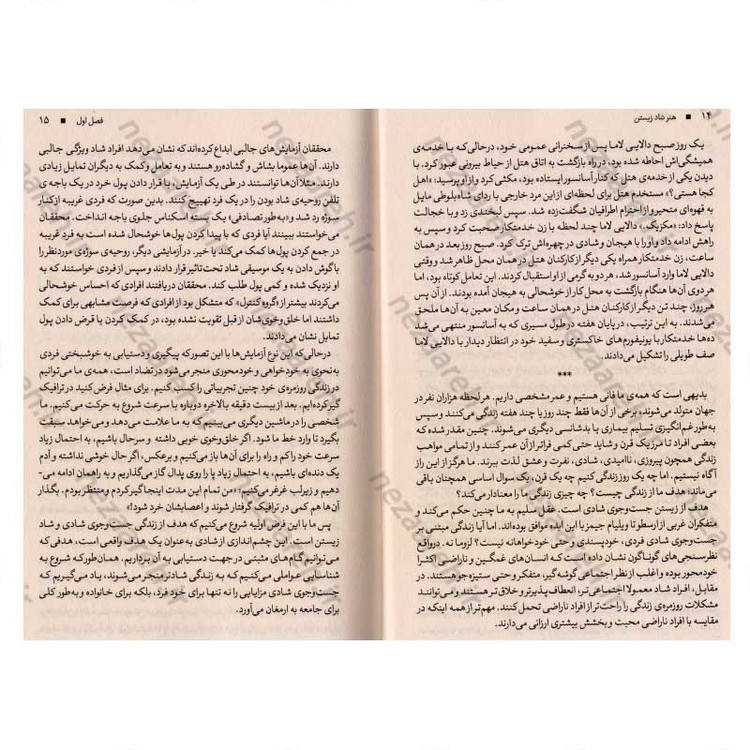 ۱۴ ■ هنر شاد زیستن
یک روز صبح دالایی لاما پس از سخنرانی عمومی خود، درحالی‌که با خدمه‌ی
همیشگی‌اش احاطه شده بود، در راه بازگشت به اتاق هتل از حیاط بیرونی عبور کرد. با
دیدن یکی از خدمه‌ی هتل که کنار آسانسور ایستاده بود، مکثی کرد و از او پرسید: «اهل
کجا هستی؟» مستخدم هتل برای لحظه‌ای از این مرد خارجی با ردای شاه‌بلوطی مایل
به قهوه‌ای متحیر و از احترام اطرافیان شگفت‌زده شد. سپس لبخندی زد و با خجالت
پاسخ داد: «مکزیک.» دالایی لاما چند لحظه با زن خدمتکار صحبت کرد و سپس به
راهش ادامه داد و او را با هیجان و شادی در چهره‌اش ترک کرد. صبح روز بعد در همان
ساعت، زن خدمتکار همراه یکی دیگر از کارکنان هتل در همان محل ظاهر شد و وقتی
دالایی لاما وارد آسانسور شد، هر دو به گرمی از او استقبال کردند. این تعامل کوتاه بود، اما
هر دوی آن‌ها هنگام بازگشت به محل کار از خوشحالی به هیجان آمده بودند. از آن پس
هر روز، چند تن دیگر از کارکنان هتل در همان ساعت و مکان معین به آن‌ها ملحق
می‌شدند. به این ترتیب، در پایان هفته در طول مسیری که به آسانسور منتهی می‌شد
ده‌ها خدمتکار با یونیفورم‌های خاکستری و سفید خود در انتظار دیدار با دالایی لاما
صف طویلی را تشکیل می‌دادند.
***
بدیهی است که همه‌ی ما فانی هستیم و عمر مشخصی داریم. هر لحظه هزاران نفر در
جهان متولد می‌شوند، برخی از آن‌ها فقط چند روز یا چند هفته زندگی می‌کنند و سپس
به‌طور غم‌انگیزی تسلیم بیماری یا بدشانسی دیگری می‌شوند. چنین مقدر شده که
بعضی افراد تا مرز یک قرن و شاید حتی کمی فراتر از آن عمر کنند و از تمامی مواهب
زندگی همچون پیروزی، ناامیدی، شادی، نفرت و عشق لذت ببرند. ما هرگز از این راز
آگاه نیستیم. اما چه یک روز زندگی کنیم چه یک قرن، یک سوال اساسی همچنان باقی
می‌ماند: هدف ما از زندگی چیست؟ چه چیزی زندگی ما را معنادار می‌کند؟
هدف از زندگی جست‌وجوی شادی است. عقل سلیم به ما چنین حکم می‌کند و
متفکران غربی از ارسطو تا ویلیام جیمز با این ایده موافق بوده‌اند. اما آیا زندگی مبتنی بر
جست‌وجوی شادی فردی، خودپسندی و حتی خودخواهانه نیست؟ لزوما نه. درواقع
نظرسنجی‌های گوناگون نشان داده است که انسان‌های غمگین و ناراضی اکثرا
خودمحور بوده و اغلب از نظر اجتماعی گوشه‌گیر، متفکر و حتی ستیزه‌جو هستند. در
مقابل، افراد شاد معمولا اجتماعی‌تر، انعطاف‌پذیرتر و خلاق‌تر هستند و می‌توانند
مشکلات روزمره‌ی زندگی را راحت‌تر از افراد ناراضی تحمل کنند. مهم‌تر از همه اینکه در
مقایسه با افراد ناراضی محبت و بخشش بیشتری ارزانی می‌دارند.
فصل اول ■ ۱۵
محققان آزمایش‌های جالبی ابداع کرده‌اند که نشان می‌دهد افراد شاد ویژگی جالبی
دارند. آن‌ها عموما بشاش و گشاده‌رو هستند و به تعامل و کمک به دیگران تمایل زیادی
دارند. مثلا آن‌ها توانستند در طی یک آزمایش، با قرار دادن پول خرد در یک باجه ی
تلفن روحیه‌ی شاد بودن را در یک فرد تهییج کنند. بدین صورت که فردی غریبه از کنار
سوژه رد شد و «به‌طور تصادفی» یک بسته اسکناس جلوی باجه انداخت. محققان
می‌خواستند ببینند آیا فردی که با پیدا کردن پول‌ها خوشحال شده است به فرد غریبه
در جمع کردن پول‌ها کمک می‌کند یا خیر. در آزمایشی دیگر، روحیه‌ی سوژه‌ی موردنظر را
با گوش دادن به یک موسیقی شاد تحت‌تاثیر قرار دادند و سپس از فردی خواستند که به
او نزدیک شده و کمی پول طلب کند. محققان دریافتند افرادی که احساس خوشحالی
می‌کردند بیشتر از «گروه کنترل» که متشکل بود از افرادی که فرصت مشابهی برای کمک
داشتند اما خلق‌وخوی‌شان از قبل تقویت نشده بود، در کمک کردن یا قرض دادن پول
تمایل نشان می‌دادند.
درحالی‌که این نوع آزمایش‌ها با این تصور که پیگیری و دستیابی به خوشبختی فردی
به‌نحوی به خودخواهی و خودمحوری منجر می‌شود در تضاد است، همه‌ی ما می‌توانیم
در زندگی روزمره‌ی خود چنین تجربیاتی را کسب کنیم. برای مثال فرض کنید در ترافیک
گیر کرده‌ایم. بعد از بیست دقیقه بالاخره دوباره با سرعت شروع به حرکت می‌کنیم. ما
شخصی را در ماشین دیگری می‌بینیم که به ما علامت می‌دهد و می‌خواهد سبقت
بگیرد تا وارد خط ما شود. اگر خلق‌وخوی خوبی داشته و سرحال باشیم، به احتمال زیاد
سرعت خود را کم و راه را برای آن‌ها باز می‌کنیم و برعکس، اگر حال خوشی نداشته و آدم
یک دنده‌ای باشیم، به احتمال زیاد پا را روی پدال گاز می‌گذاریم و به راهمان ادامه می‌-
دهیم و زیرلب غرغر می‌کنیم: «من تمام این مدت اینجا گیر کردم و منتظر بودم. بگذار
آن‌ها هم کمی در ترافیک گرفتار شوند و اعصابشان خرد شود!»
پس ما با این فرض اولیه شروع می‌کنیم که هدف از زندگی جست‌وجوی شادی و شاد
زیستن است. این چشم‌اندازی از شادی به‌عنوان یک هدف واقعی است، هدفی که
می‌توانیم گام‌های مثبتی در جهت دستیابی به آن برداریم. همان‌طور که شروع به
شناسایی عواملی می‌کنیم که به زندگی شادتر منجر می‌شوند، یاد می‌گیریم که
جست‌وجوی شادی مزایایی را نه تنها برای خود فرد، بلکه برای خانواده و به‌طور کلی
برای جامعه به ارمغان می‌آورد.